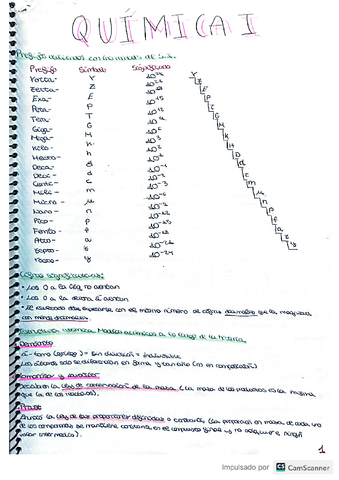 QUÍMICA I
Prefijos utilizados con unidades de S.I.
Prefijo Símbolo Significado
Yotta- Y 10²⁴
Zetta- Z 10²¹
Exa- E 10¹⁸
Peta- P 10¹⁵
Tera- T 10¹²
Giga- G
Mega- M
Kilo- K 10³
Hecto- h 10²
Deca-
Deci- d
Centi- c
Mili- m 10⁻³
Micro- μ 10⁻⁶
Nano- n
Pico- p 10⁻¹²
Femto- f 10⁻¹⁵
Atto- a
Zepto- z 10⁻²¹
Yocto- y 10⁻²⁴
Y
Z
E
P
T
G
M
K
H
D
d
c
m
μ
n
p
f
a
z
y
Cifras significativas:
• Los 0 a la izq no cuentan
• Los 0 a la decha sí cuentan
• El resultado debe expresarse con el mismo número de cifras decimales que la magnitud
con menos decimales
Estructura atómica. Modelos atómicos a lo largo de la historia.
Demócrito
a-tomo (griego) = sin división = indivisible
Los átomos solo se diferencian en forma y tamaño (no en composición)
Lomonósov y Lavoisier
Ley de conservación de la masa (la masa de los productos es la misma
que la de los reactivos).
Proust
Enunció la Ley de las proporciones definidas o constantes (la proporción en masa de cada uno
de los componentes se mantiene constante en el compuesto final y no adquiere ningún
valor intermedio).
1
Impulsado por CS CamScanner